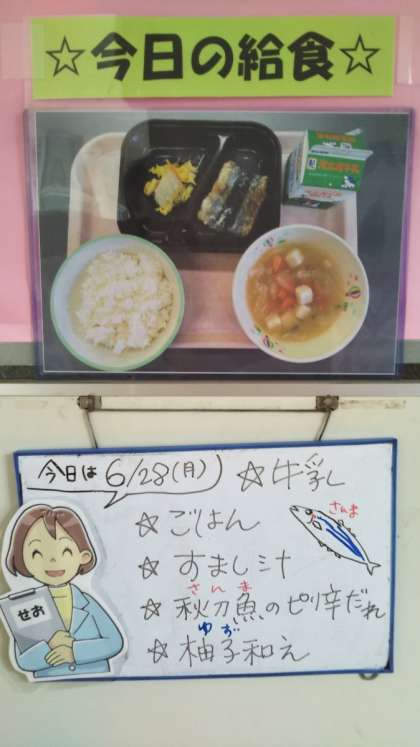 ☆今日の給食☆
今日は 6/28(月)
☆牛乳
☆ごはん
さんま
☆すまし汁
さんま
☆秋刀魚のピリ辛だれ
ゆず
☆柚子和え
せお